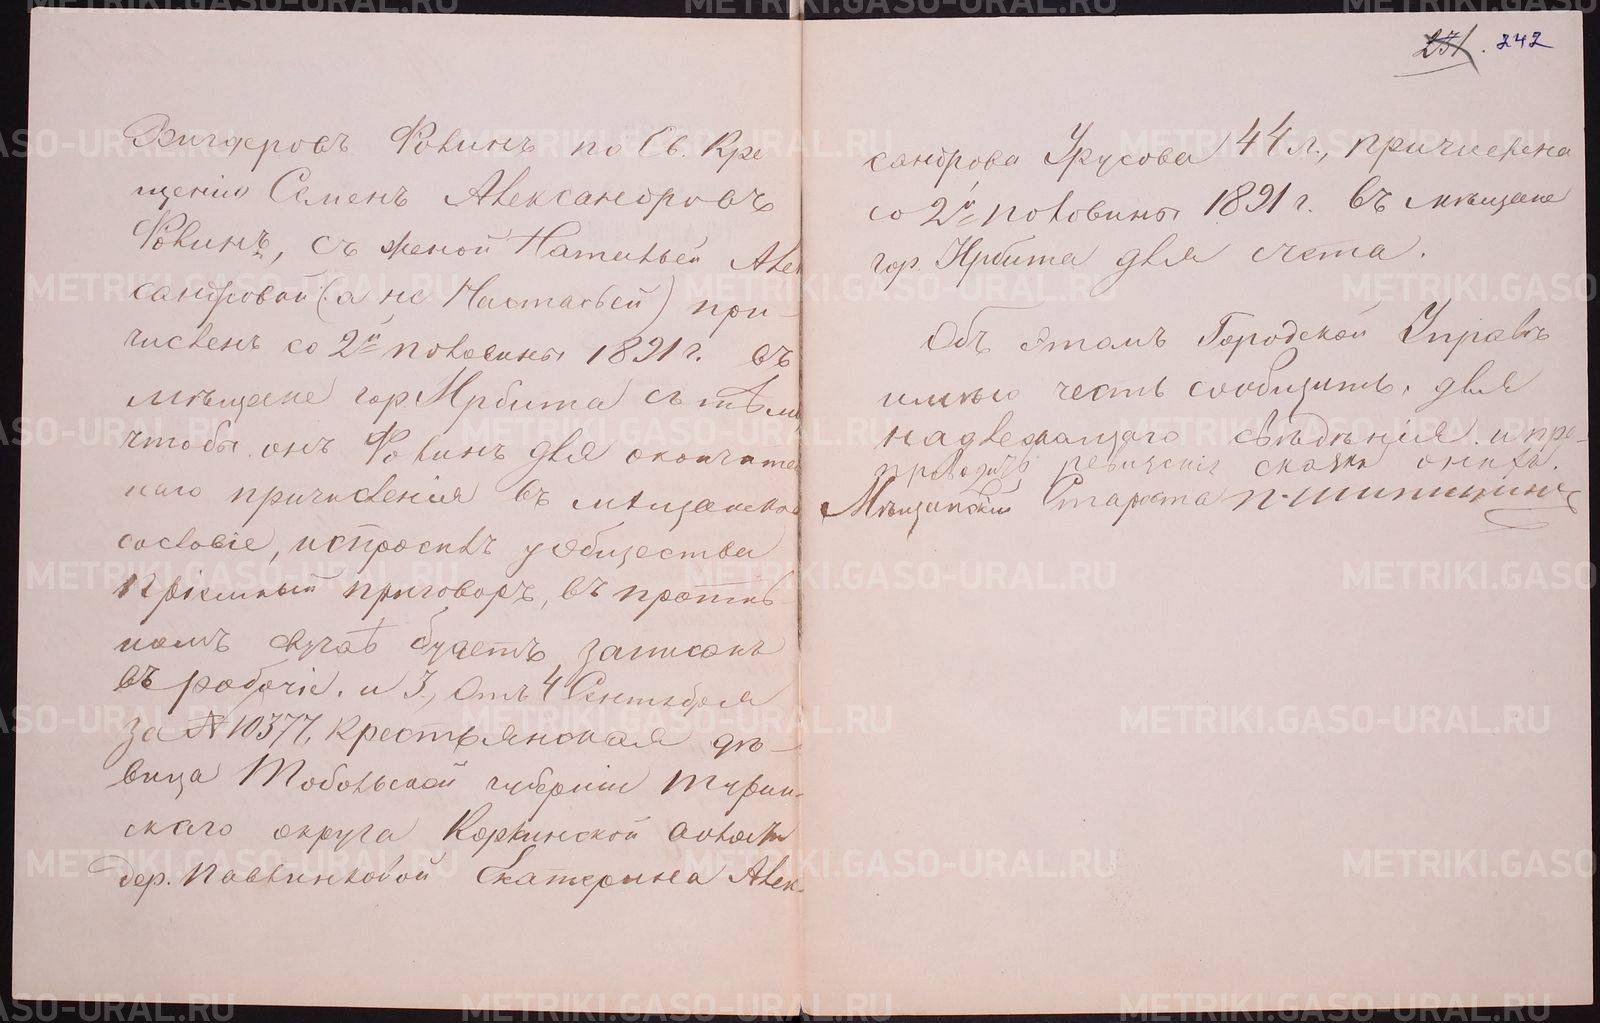 231. 242
Вигдеровъ Фовинъ по Св. Кре
щенію Семенъ Александровъ
Фовинъ, съ женой Натальей Алек
сандровой (а не Настасьей) при-
численъ со 2й половины 1891 г. въ
мѣщане гор. Ирбита съ тѣмъ
чтобы онъ Фовинъ для окончател
наго причисленія въ мѣщанское
сословіе, испросилъ у общества
пріемный приговоръ, въ против
номъ случаѣ будетъ записанъ
въ рабочіе. и 3, отъ 4 Сентября
за № 10377, Крестьянская дѣ-
вица Тобольской губерніи Турин-
скаго округа Коркинской волости
дер. Павлинковой Екатерина Алек-
сандрова Урусова 44 л., причислена
со 2й половины 1891 г. въ мѣщане
гор. Ирбита для счета.
Объ этомъ Городской Управѣ
имѣю честь сообщить, для
надлежащаго свѣдѣнія и пре-
проводить ревизскія сказки
Мѣщанскій Староста П. Шипицинъ
METRIKI.GASO-URAL.RU